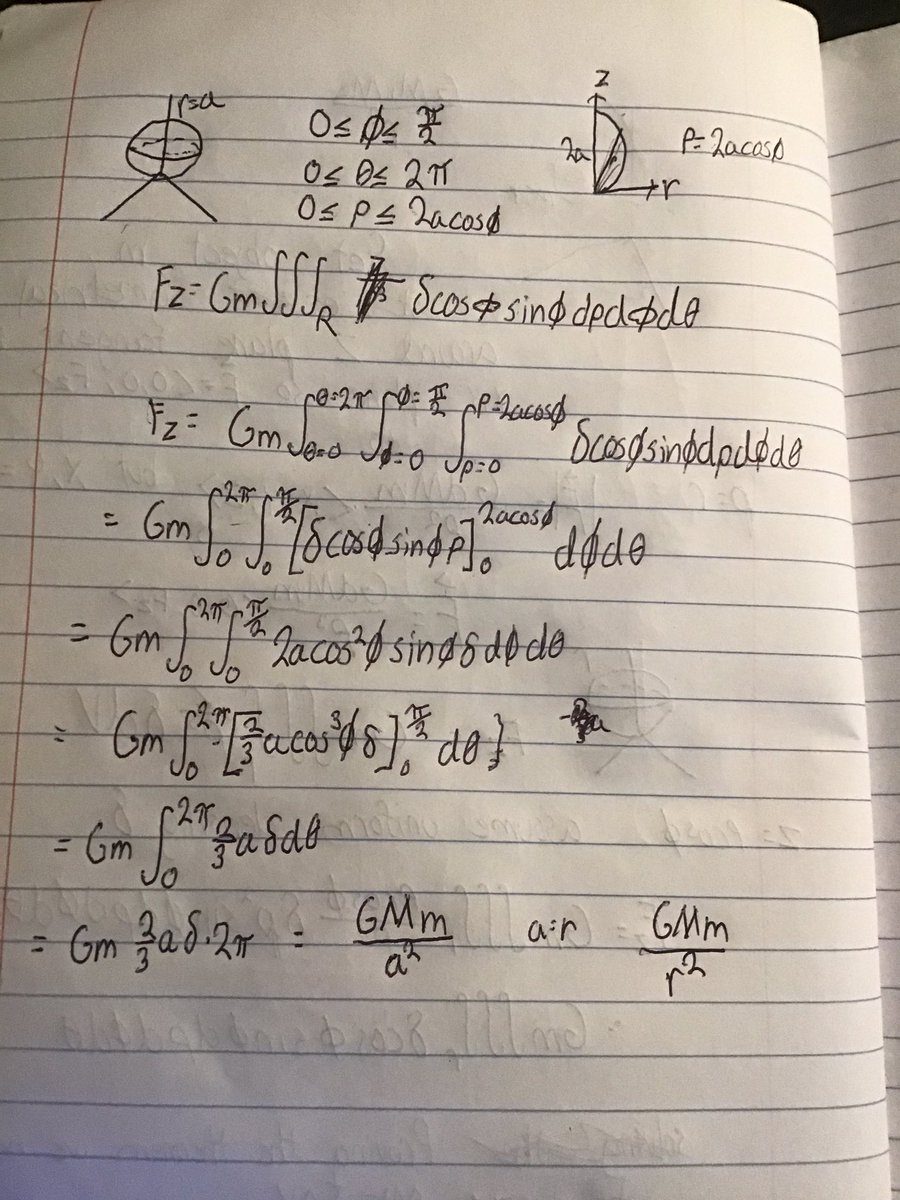 r=a
0≤ϕ≤π/2
0≤θ≤2π
0≤ρ≤2acosϕ
z
2a
r
ρ=2acosϕ
Fz=Gm∭_R δcosϕsinϕdρdϕdθ
Fz= Gm∫_{θ=0}^{θ=2π}∫_{ϕ=0}^{ϕ=π/2}∫_{ρ=0}^{ρ=2acosϕ} δcosϕsinϕdρdϕdθ
= Gm∫_0^{2π}∫_0^{π/2}[δcosϕsinϕρ]_0^{2acosϕ} dϕdθ
= Gm∫_0^{2π}∫_0^{π/2} 2acos²ϕsinϕδdϕdθ
= Gm∫_0^{2π}-[2/3 acos³ϕδ]_0^{π/2} dθ}
= Gm∫_0^{2π} 2/3 aδdθ
= Gm 2/3 aδ·2π = GMm/a² a=r GMm/r²